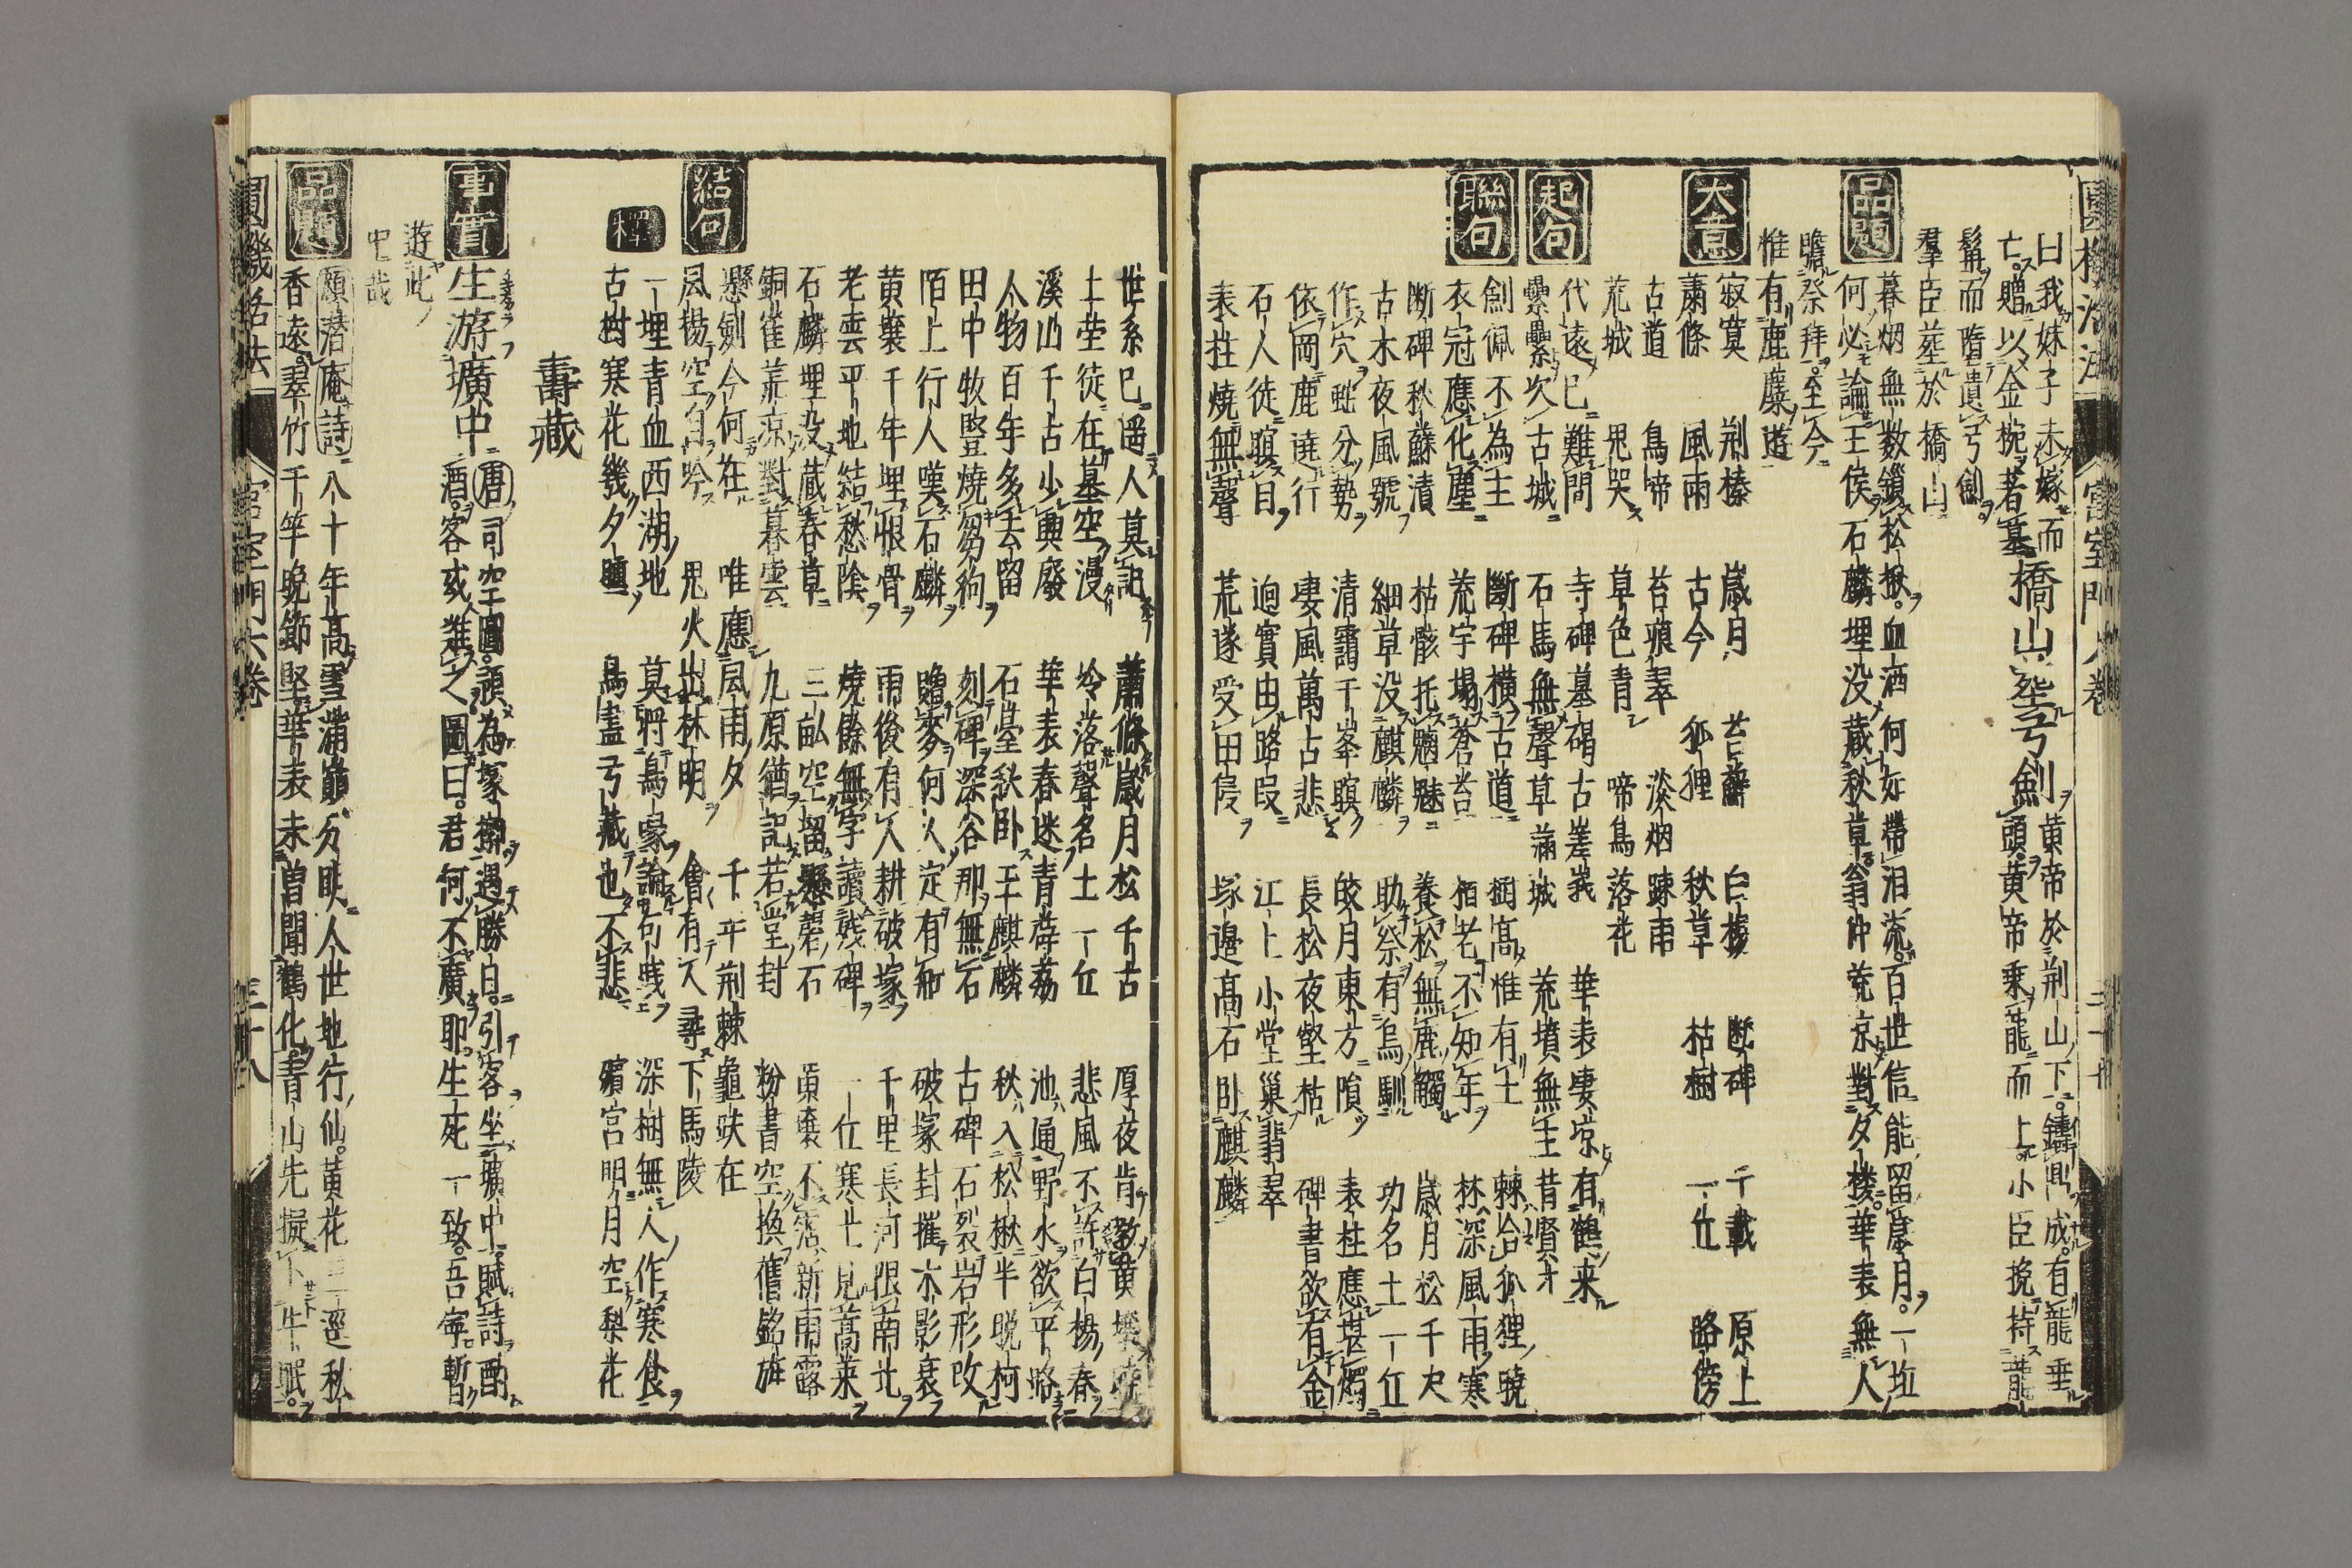 曰我妹子未嫁而
亡贈以金椀著墓
橋山塟弓劍
黄帝於荆山下鑄鼎成有龍垂
頭黄帝乗龍而上小臣挽持龍
髯而墮遺弓劍
羣臣塟於橋山
品題
暮烟無数鎖松揪。血洒何如帶泪流。百世信能留歳月。一坵
何必論王侯。石麟埋没蔵秋草。翁仲荒凉對夕楼。華表無人
瞻祭拜。至今
惟有鹿麋遊
大意
寂寞 荆榛 歳月 苔蘚 白楊 断碑 千載 原上
蕭條 風雨 古今 狐狸 秋草 枯樹 一丘 路傍
古道 鳥啼 苔痕翠 淡烟踈雨
荒城 鬼哭 草色青 啼鳥落花
起句
代遠已難問 寺碑墓碣古嵳峩 華表凄凉有鶴来
纍纍次古城 石馬無聲草滿城 荒墳無主昔賢才
聯句
劍佩不為主 斷碑横古道 桐高惟有土 棘合狐狸暁
衣冠應化塵 荒宇塌蒼苔 栢老不知年 林深風雨寒
断碑秋蘇漬 枯骸托魍魅 養松無鹿觸 歳月松千尺
古木夜風號 細草没麒麟 助祭有烏馴 功名土一丘
作穴毗分勢 清霜千峯暝 皎月東方隕 表柱應堪燭
依岡鹿遶行 凄風萬古悲 長松夜壑枯 碑書欲有金
石人徒瞑目 迥實由路叚 江上小堂巢翡翠
表柱燒無聲 荒遂受田侵 塚邊高石卧麒麟
世系已遥人莫記 蕭條歳月松千古 厚夜肯教黄壌
土塋徒在墓空漫 冷落聲名土一丘 悲風不許白楊春
溪山千古少興廢 華表春迷青薜荔 池通野水欲平路
人物百年多去留 石臺秋卧玉麒麟 秋入松楸半脱柯
田中牧豎燒芻狗 刻碑深谷那無石 古碑石裂岩形改
陌上行人嘆石麟 贈麥何人定有
黄蘗千年埋恨骨 雨後有人耕破塚 千里長河限南北
老雲平地結愁陰 燒餘無字讀残碑 一丘寒土見蒿莱
石麟埋没蔵春草 三畝空留懸碧石
銅雀荒凉對暮雲 九原猶記若堂封 粉書空換舊銘旌
結句
懸劍今何在 唯應風雨夕 千年荆棘 龜趺在
風楊空自吟 鬼火出林明 會有人尋下馬陵
釋
一埋青血西湖地 莫將鳥喙論勾践 深樹無人作寒食
古樹寒花幾夕曛 鳥盡弓藏也不悲 殯宮明月空梨花
壽藏
事實
生游壙中
唐司空圖。預為塚擲遇勝日。引客坐壙中。賦詩酌
酒。客或難之圖曰。君何不廣耶。生死一致。吾寧暫
遊此
中哉
品題
顧潜庵詩 八十年高雪滿巓。分明人世地行仙。黄花三逕秋
香遠。翠竹千竿晩節堅。華表未曽聞鶴化。青山先擬卜牛眠。